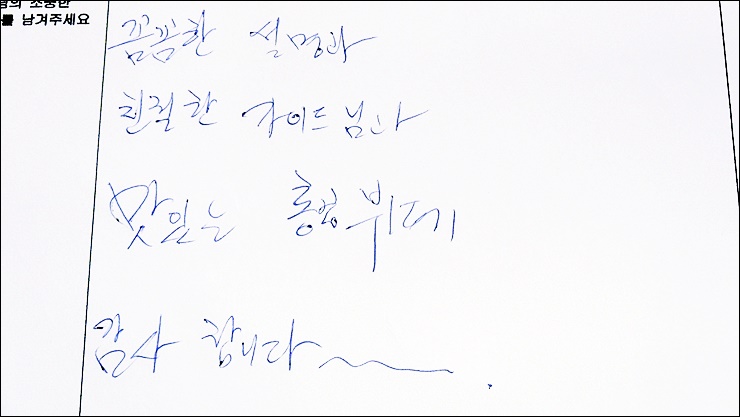 의 소중한
를 남겨주세요
꼼꼼한 설명과
친절한 가이드님과
맛있는 통영 뷔페
감사합니다~